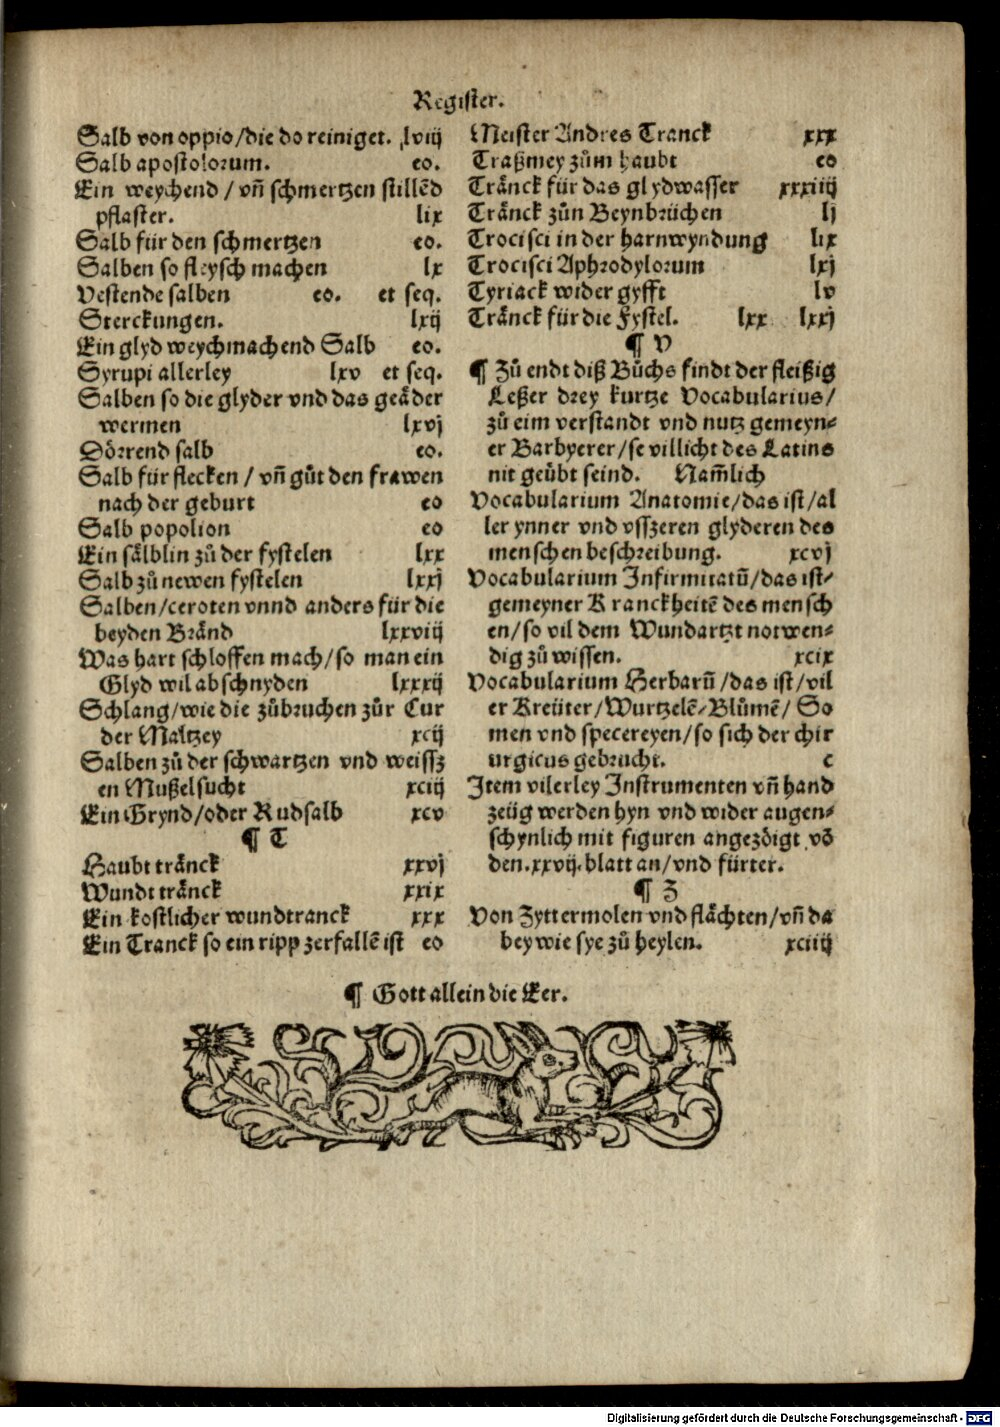 Register.
Salb von oppio/die do reiniget. lviij
Salb apostolorum. eo.
Ein weychend / vñ schmertzen stillẽd
pflaster. lix
Salb für den schmertzen eo.
Salben so fleysch machen lx
Vestende salben eo. et seq.
Sterckungen. lxij
Ein glyd weychmachend Salb eo.
Syrupi allerley lxv et seq.
Salben so die glyder vnd das geäder
wermen lxvj
Dörrend salb eo.
Salb für flecken / vñ gůt den frawen
nach der geburt eo
Salb popolion eo
Ein sälblin zů der fystelen lxx
Salb zů newen fystelen lxxj
Salben/ceroten vnnd anders für die
beyden Bränd lxxviij
Was hart schloffen mach/so man ein
Glyd wil abschnyden lxxxij
Schlang/wie die zůbruchen zůr Cur
der Maltzey xcij
Salben zů der schwartzen vnd weissz
en Mußelsucht xciij
Ein Grynd/oder Rudsalb xcv
¶ T
Haubt tränck xxvj
Wundt tränck xxix
Ein kostlicher wundtranck xxx
Ein Tranck so ein ripp zerfallẽ ist eo
Meister Andres Tranck xxx
Traßmey zům haubt eo
Tränck für das glydwasser xxxiiij
Tränck zůn Beynbrüchen lj
Trocisci in der harnwyndung lix
Trocisci Aphrodylorum lxj
Tyriack wider gyfft lv
Tränck für die Fystel. lxx lxxj
¶ V
¶ Zů endt diß Bůchs findt der fleißig
Leßer drey kurtze Vocabularius/
zů eim verstandt vnd nutz gemeyn⸗
er Barbyerer/se villicht des Latins
nit geübt seind. Nam̃lich
Vocabularium Anatomie/das ist/al
ler ynner vnd vsszeren glyderen des
menschen beschreibung. xcvj
Vocabularium Infirmitatũ/das ist⸗
gemeyner Kranckheitẽ des mensch
en/so vil dem Wundartzt notwen⸗
dig zů wissen. xcix
Vocabularium Herbarũ/das ist/vil
er Kreüter/Wurtzelẽ⸗Blůmẽ/ So
men vnd specereyen/so sich der chir
urgicus gebrucht. c
Item vilerley Instrumenten vñ hand
zeüg werden hyn vnd wider augen⸗
schynlich mit figuren angezöigt võ
den.xxvij.blatt an/vnd fürter.
¶ Z
Von Zyttermolen vnd flächten/vñ da
bey wie sye zů heylen. xciiij
¶ Gott allein die Eer.
Digitalisierung gefördert durch die Deutsche Forschungsgemeinschaft - DFG